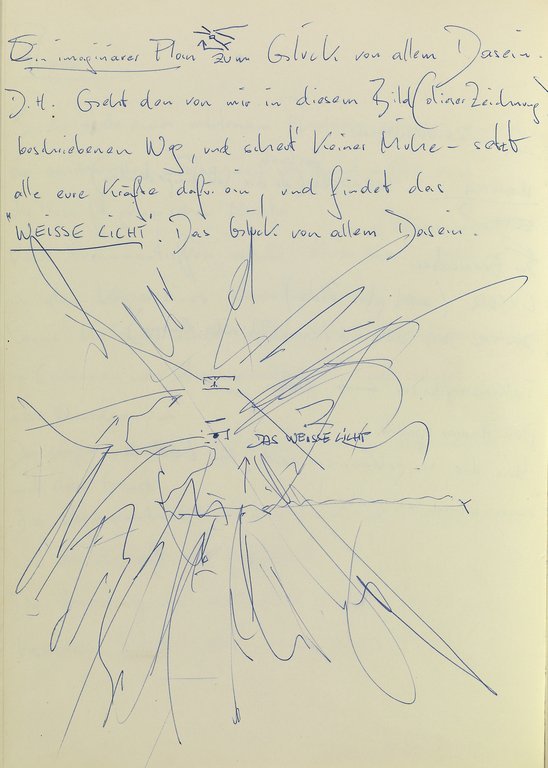 Ein imaginärer Plan zum Glück von allem Dasein.
D.H. Geht den von mir in diesem Bild (dieser Zeichnung)
beschriebenen Weg, und scheut keiner Mühe – setzt
alle eure Kräfte dafür ein, und findet das
"WEISSE LICHT". Das Glück von allem Dasein.
1
DAS WEISSE LICHT